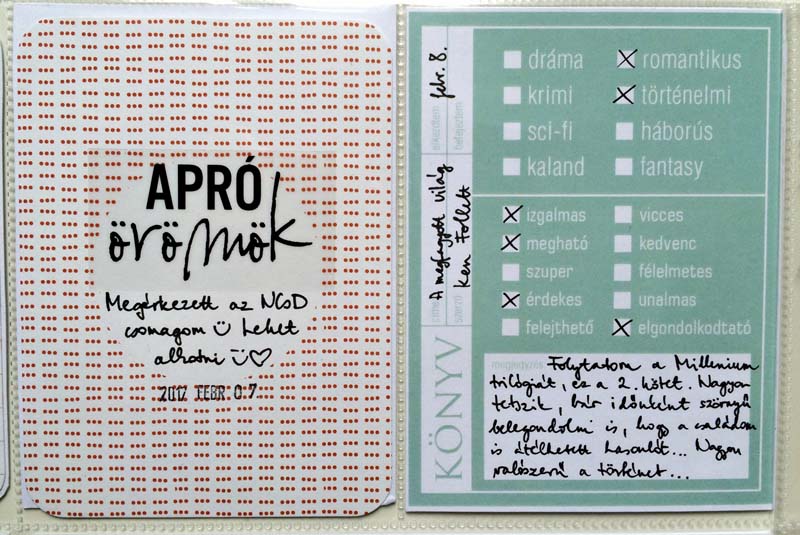 APRÓ
örömök
Megérkezett az NCsD
csomagom Lehet
alkotni
2017 FEBR 07.
dráma
romantikus
krimi
történelmi
sci-fi
háborús
kaland
fantasy
izgalmas
vicces
megható
kedvenc
szuper
félelmetes
érdekes
unalmas
felejthető
elgondolkodtató
elkezdtem
befejeztem
febr. 8.
A megfagyott világ
Ken Follett
szerző
KÖNYV
megjegyzés
Folytatom a Millenium
trilógiát, ez a 2. kötet. Nagyon
tetszik, bár időnként szörnyű
belegondolni is, hogy a családom
is átélhetett hasonlót... Nagyon
valószerű a történet...